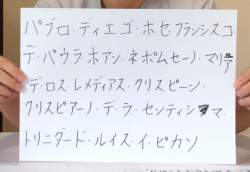 パブロ・ディエゴ・ホセ・フランシスコ
デ・パウラ・ホアン・ネポムセーノ・マリア
デ・ロス・レメディアス・クリスピーン・
クリスピアーノ・デ・ラ・センティシマ・
トリニダード・ルイス・イ・ピカソ